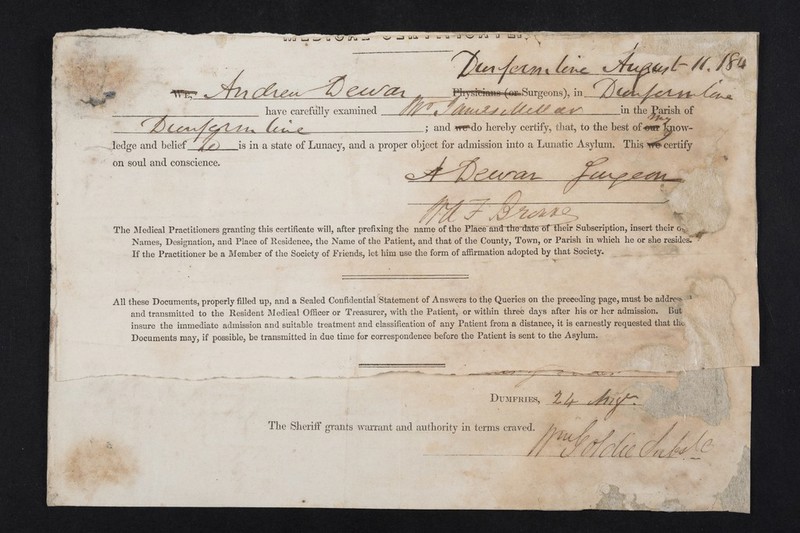 Dunfermline August 11. 184
WE, Andrew Dewar Physicians (or Surgeons), in Dunfermline
have carefully examined Mr James Millar in the Parish of
Dunfermline ; and we do hereby certify, that, to the best of our my know-
ledge and belief he is in a state of Lunacy, and a proper object for admission into a Lunatic Asylum. This we certify
on soul and conscience.
A Dewar Surgeon
W A F Browne
The Medical Practitioners granting this certificate will, after prefixing the name of the Place and the date of their Subscription, insert their o
Names, Designation, and Place of Residence, the Name of the Patient, and that of the County, Town, or Parish in which he or she resides.
If the Practitioner be a Member of the Society of Friends, let him use the form of affirmation adopted by that Society.
All these Documents, properly filled up, and a Sealed Confidential Statement of Answers to the Queries on the preceding page, must be addres
and transmitted to the Resident Medical Officer or Treasurer, with the Patient, or within three days after his or her admission. But
insure the immediate admission and suitable treatment and classification of any Patient from a distance, it is earnestly requested that the
Documents may, if possible, be transmitted in due time for correspondence before the Patient is sent to the Asylum.
DUMFRIES, 24 Augt.
The Sheriff grants warrant and authority in terms craved.
Wm Goldie Subste